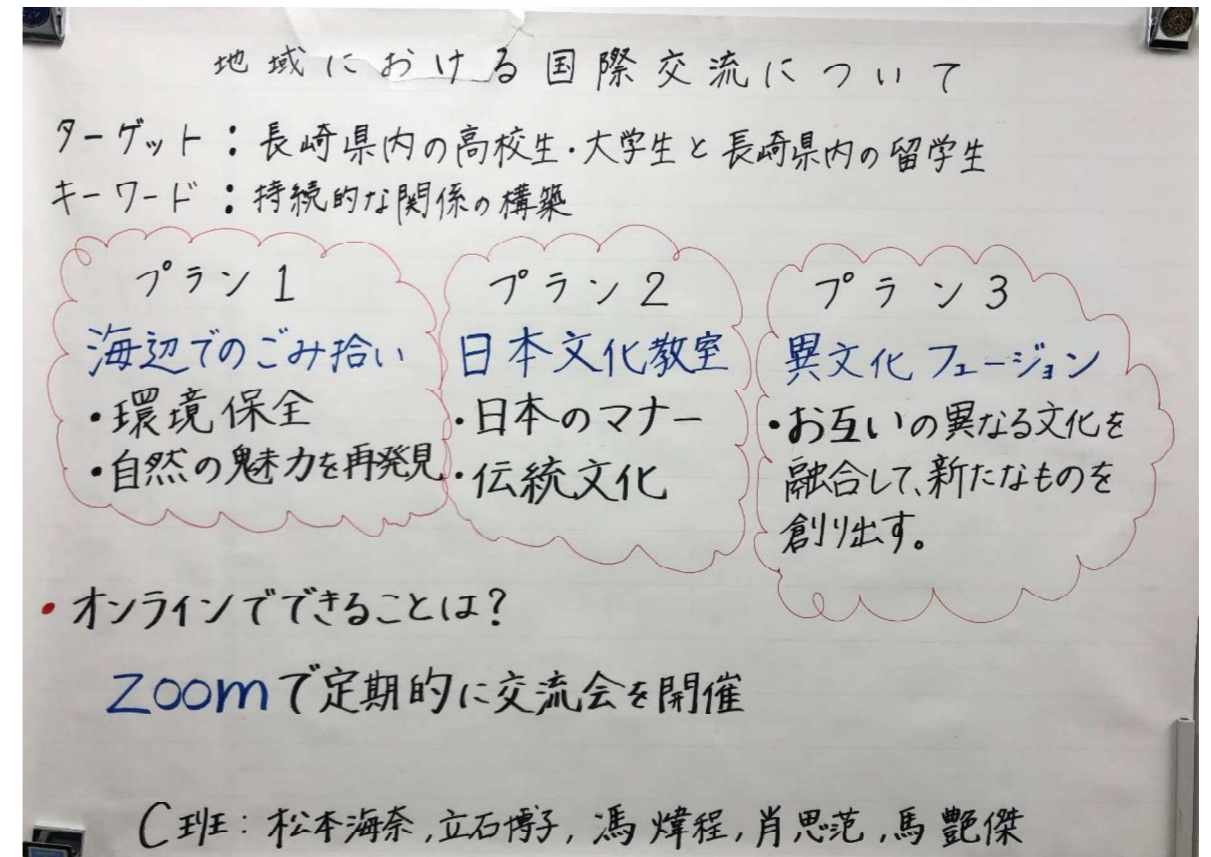 地域における国際交流について
ターゲット：長崎県内の高校生・大学生と長崎県内の留学生
キーワード：持続的な関係の構築
プラン1
海辺でのごみ拾い
・環境保全
・自然の魅力を再発見
プラン2
日本文化教室
・日本のマナー
・伝統文化
プラン3
異文化フュージョン
・お互いの異なる文化を
融合して、新たなものを
創り出す。
・オンラインでできることは？
zoomで定期的に交流会を開催
C班：松本海奈,立石博子,馮煒程,肖思范,馬艶傑